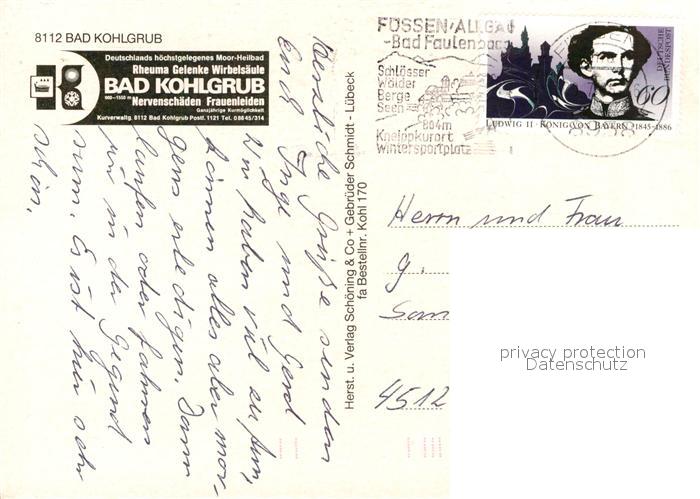 8112 BAD KOHLGRUB
Deutschlands höchstgelegenes Moor-Heilbad
Rheuma Gelenke Wirbelsäule
BAD KOHLGRUB
900—1550 m Nervenschäden Frauenleiden
Ganzjährige Kurmöglichkeit
Kurverwaltg. 8112 Bad Kohlgrub Postf. 1121 Tel. 08845/314
Herzliche Grüße senden
Euch Inge und Gerd
Wir haben viel zu tun,
können alles aber mor-
gens erledigen. Dann
laufen oder fahren
wir in der Gegend
rum. Es ist hier sehr
schön.
Herst. u. Verlag Schöning & Co + Gebrüder Schmidt - Lübeck
fa Bestellnr. Kohl 170
FÜSSEN/ALLGÄU
-Bad Faulenbach
Schlösser
Wälder
Berge
Seen
804m
Kneippkurort
Wintersportplatz
DEUTSCHE
BUNDESPOST
60
LUDWIG II · KÖNIG VON BAYERN · 1845-1886
Herrn und Frau
G.
4512
privacy protection
Datenschutz